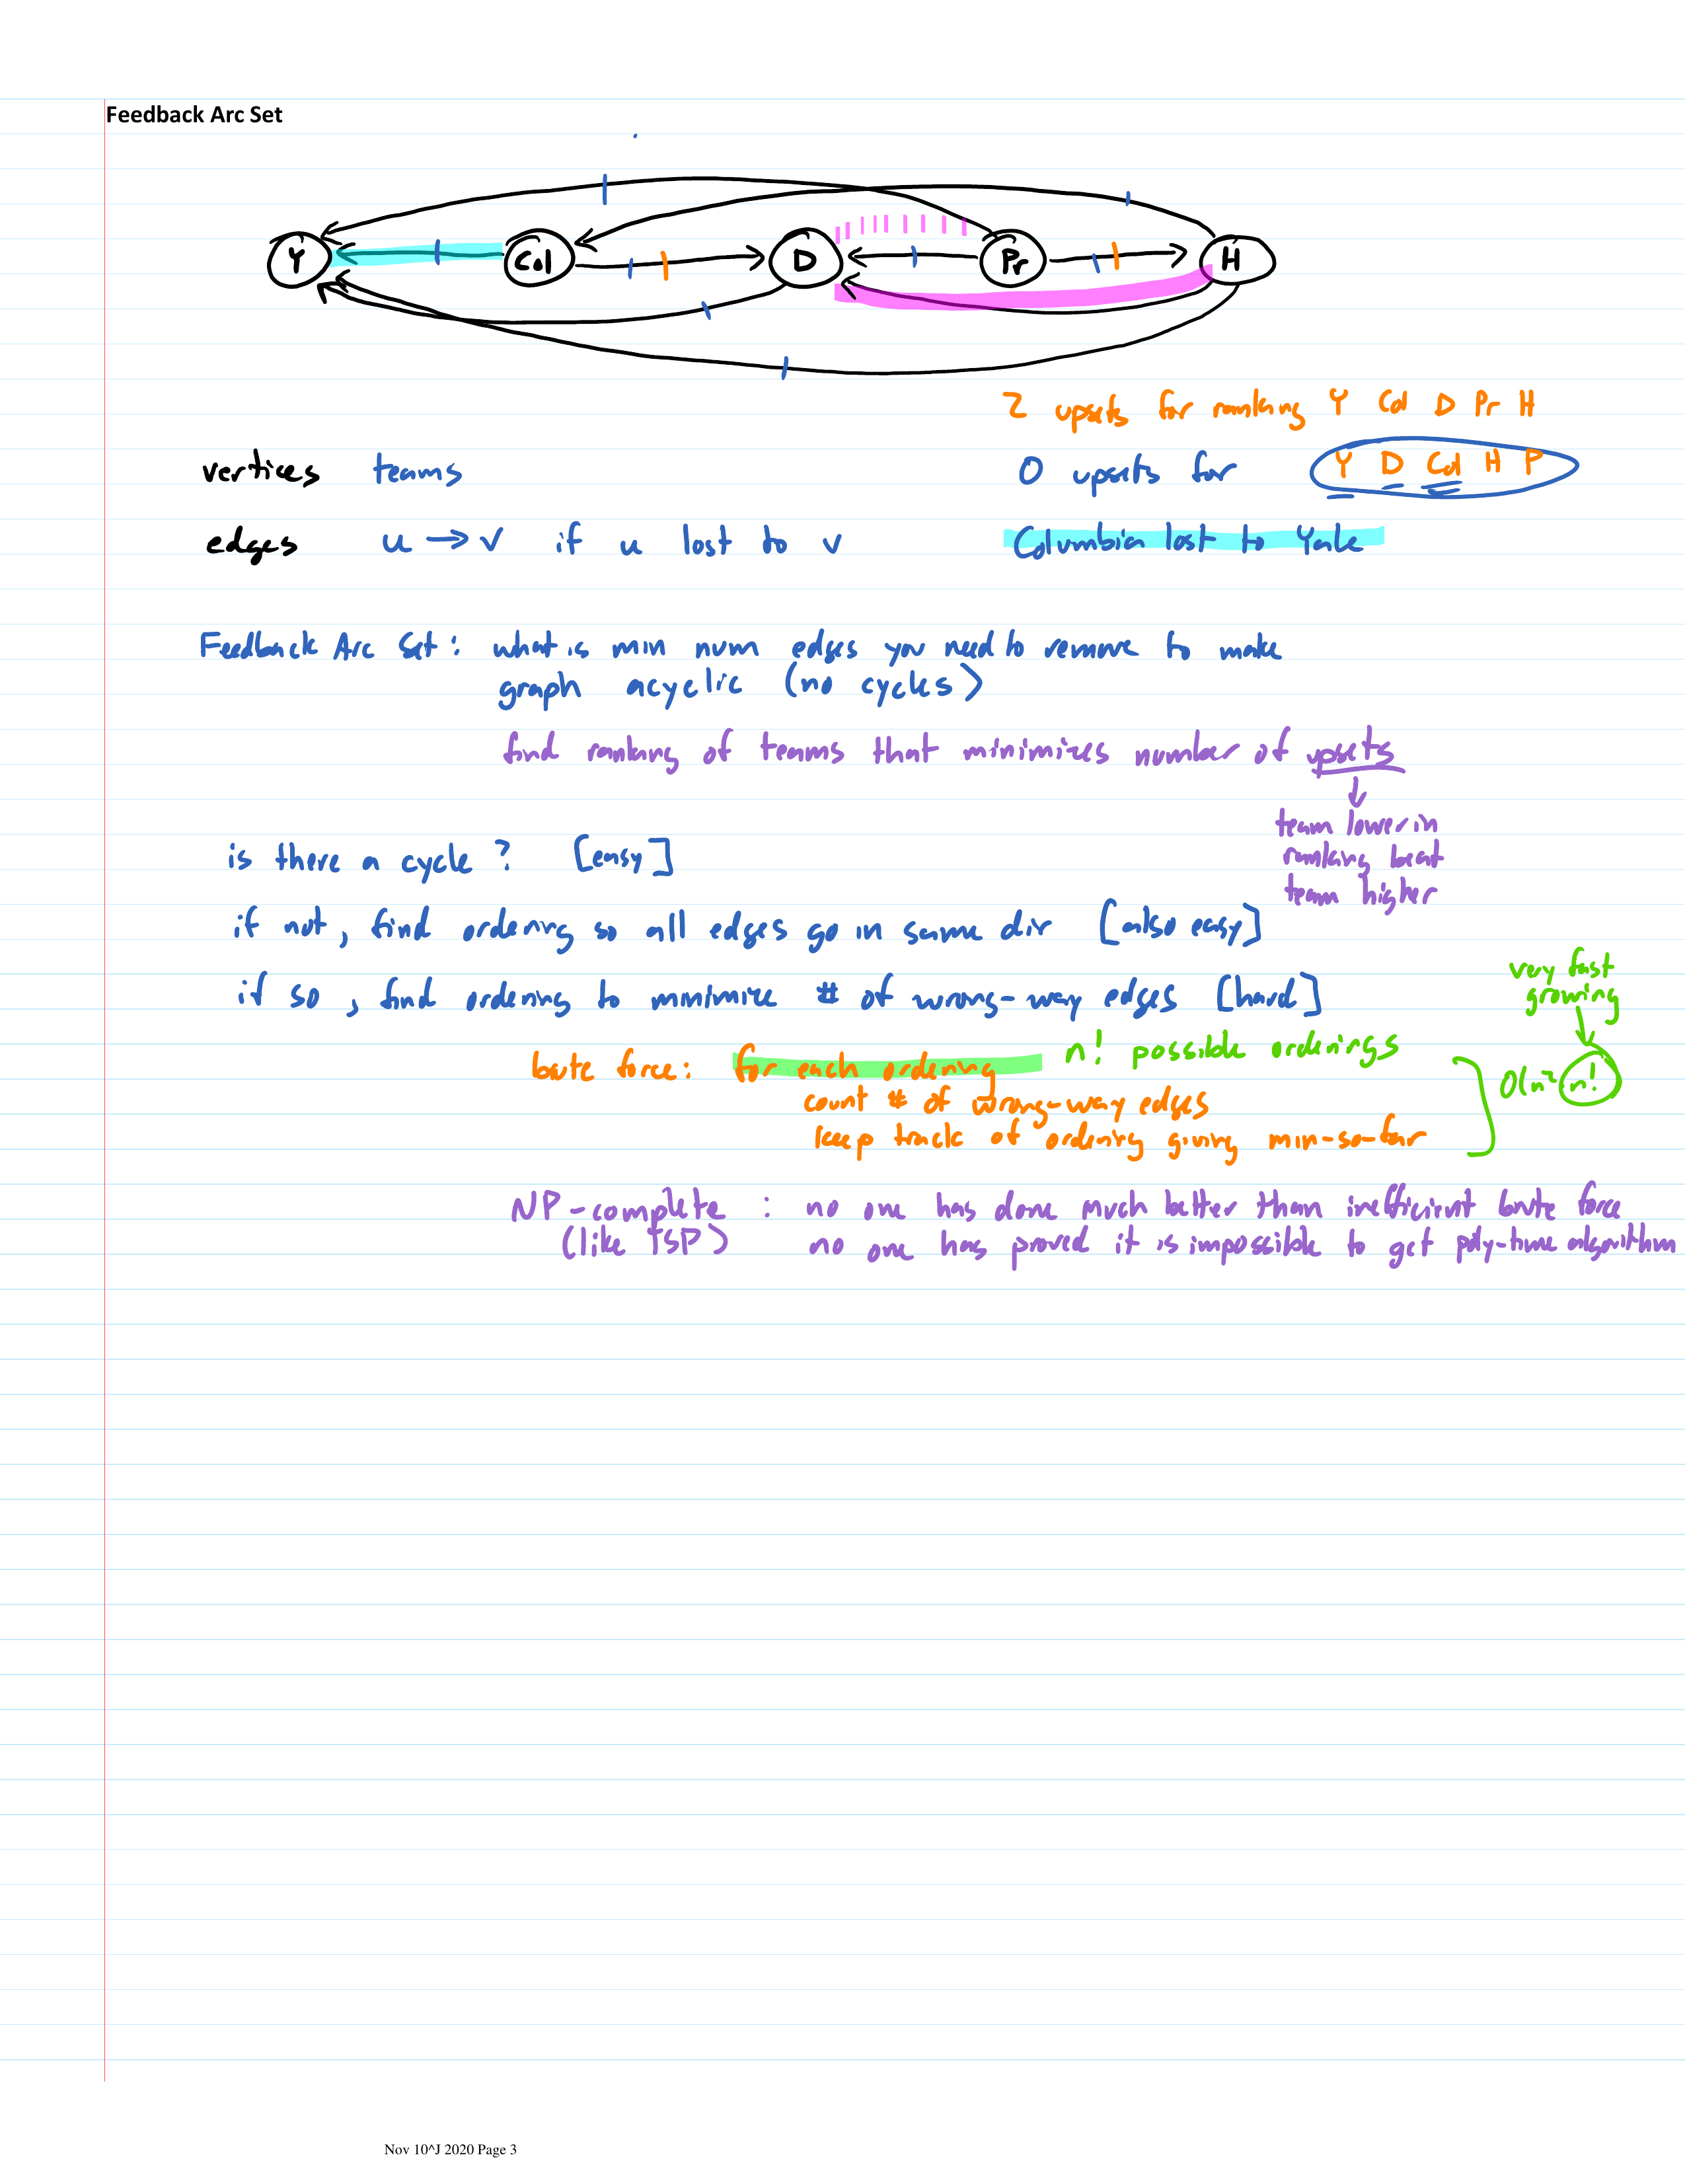 Feedback Arc Set
Y Col D Pr H
2 upsets for ranking Y Col D Pr H
vertices teams
0 upsets for Y D Col H P
edges u → v if u lost to v
Columbia lost to Yale
Feedback Arc Set: what is min num edges you need to remove to make
graph acyclic (no cycles)
find ranking of teams that minimizes number of upsets
↓
team lower in
ranking beat
team higher
is there a cycle? [easy]
if not, find ordering so all edges go in same dir [also easy]
if so, find ordering to minimize # of wrong-way edges [hard]
very fast
growing
brute force: for each ordering n! possible orderings
count # of wrong-way edges
keep track of ordering giving min-so-far
O(n² n!
NP-complete : no one has done much better than inefficient brute force
(like TSP) no one has proved it is impossible to get poly-time algorithm
Nov 10^J 2020 Page 3